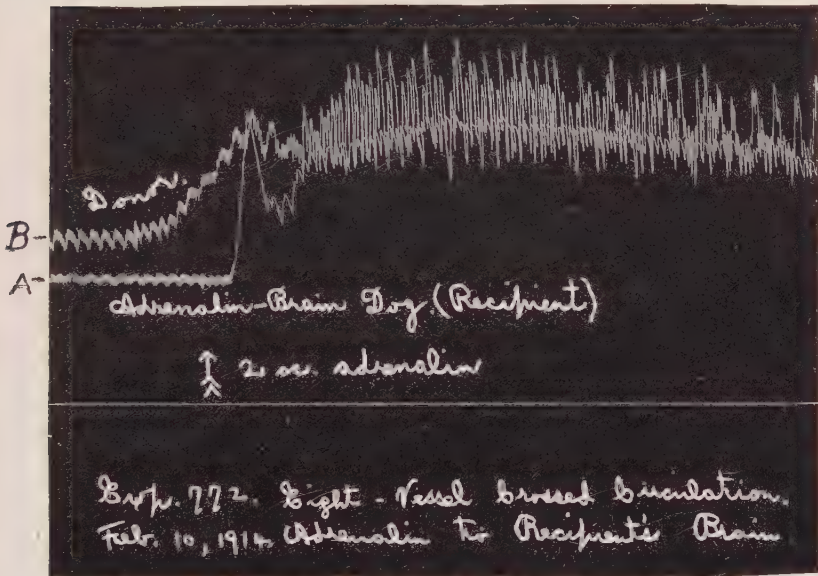 Donor.
B-
A-
Adrenalin-Brain Dog. (Recipient)
2 cc. adrenalin
Exp. 772. Eight-Vessel Crossed Circulation.
Feb. 10, 1914. Adrenalin to Recipient's Brain